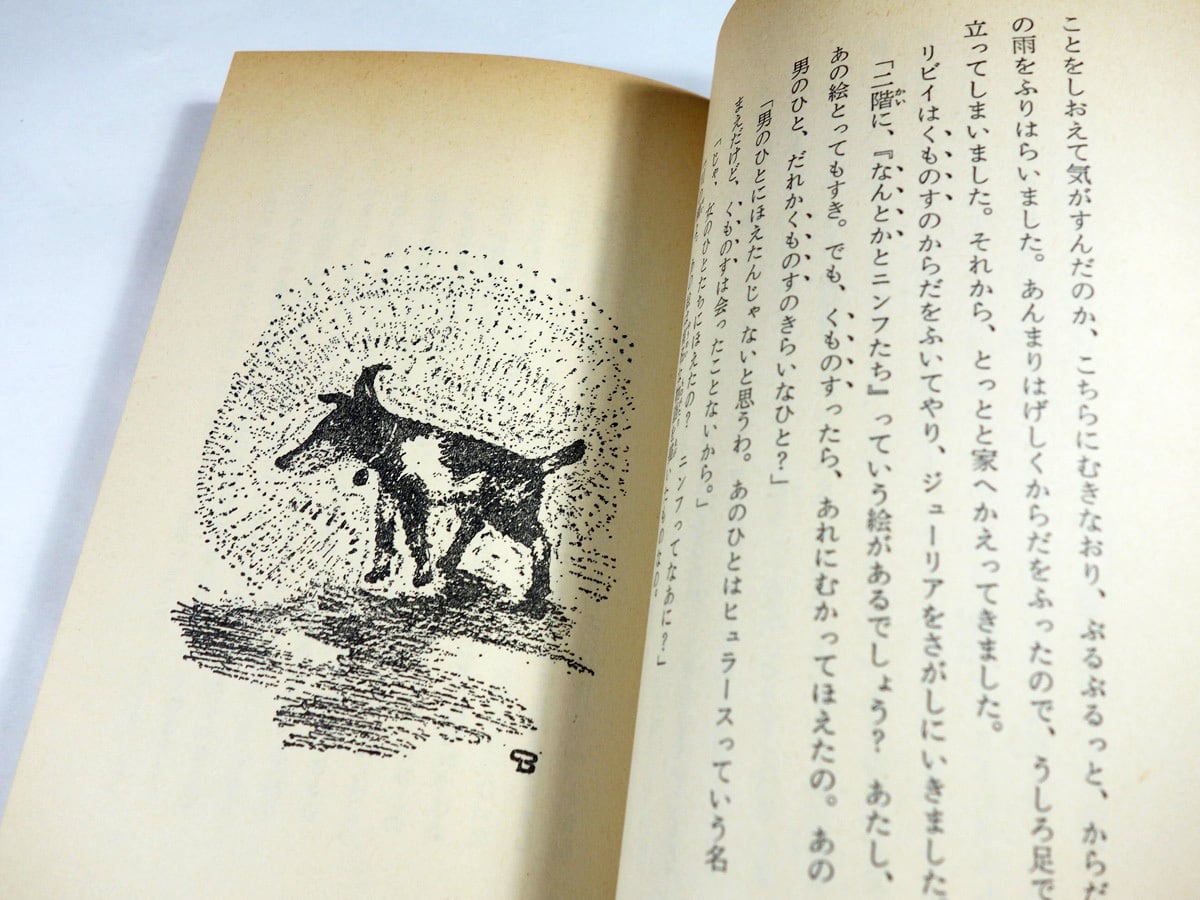 ことをしおえて気がすんだのか、こちらにむきなおり、ぶるぶるっと、からだ
の雨をふりはらいました。あんまりはげしくからだをふったので、うしろ足で
立ってしまいました。それから、とっとと家へかえってきました。
リビイはくものすのからだをふいてやり、ジューリアをさがしにいきました
「二階に、『なんとかとニンフたち』っていう絵があるでしょう？　あたし、
かい
あの絵とってもすき。でも、くものすったら、あれにむかってほえたの。あの
男のひと、だれかくものすのきらいなひと？」
「男のひとにほえたんじゃないと思うわ。あのひとはヒュラースっていう名
まえだけど、くものすは会ったことないから。」
「じゃ、女のひとたちにほえたの？　ニンフってなあに？」